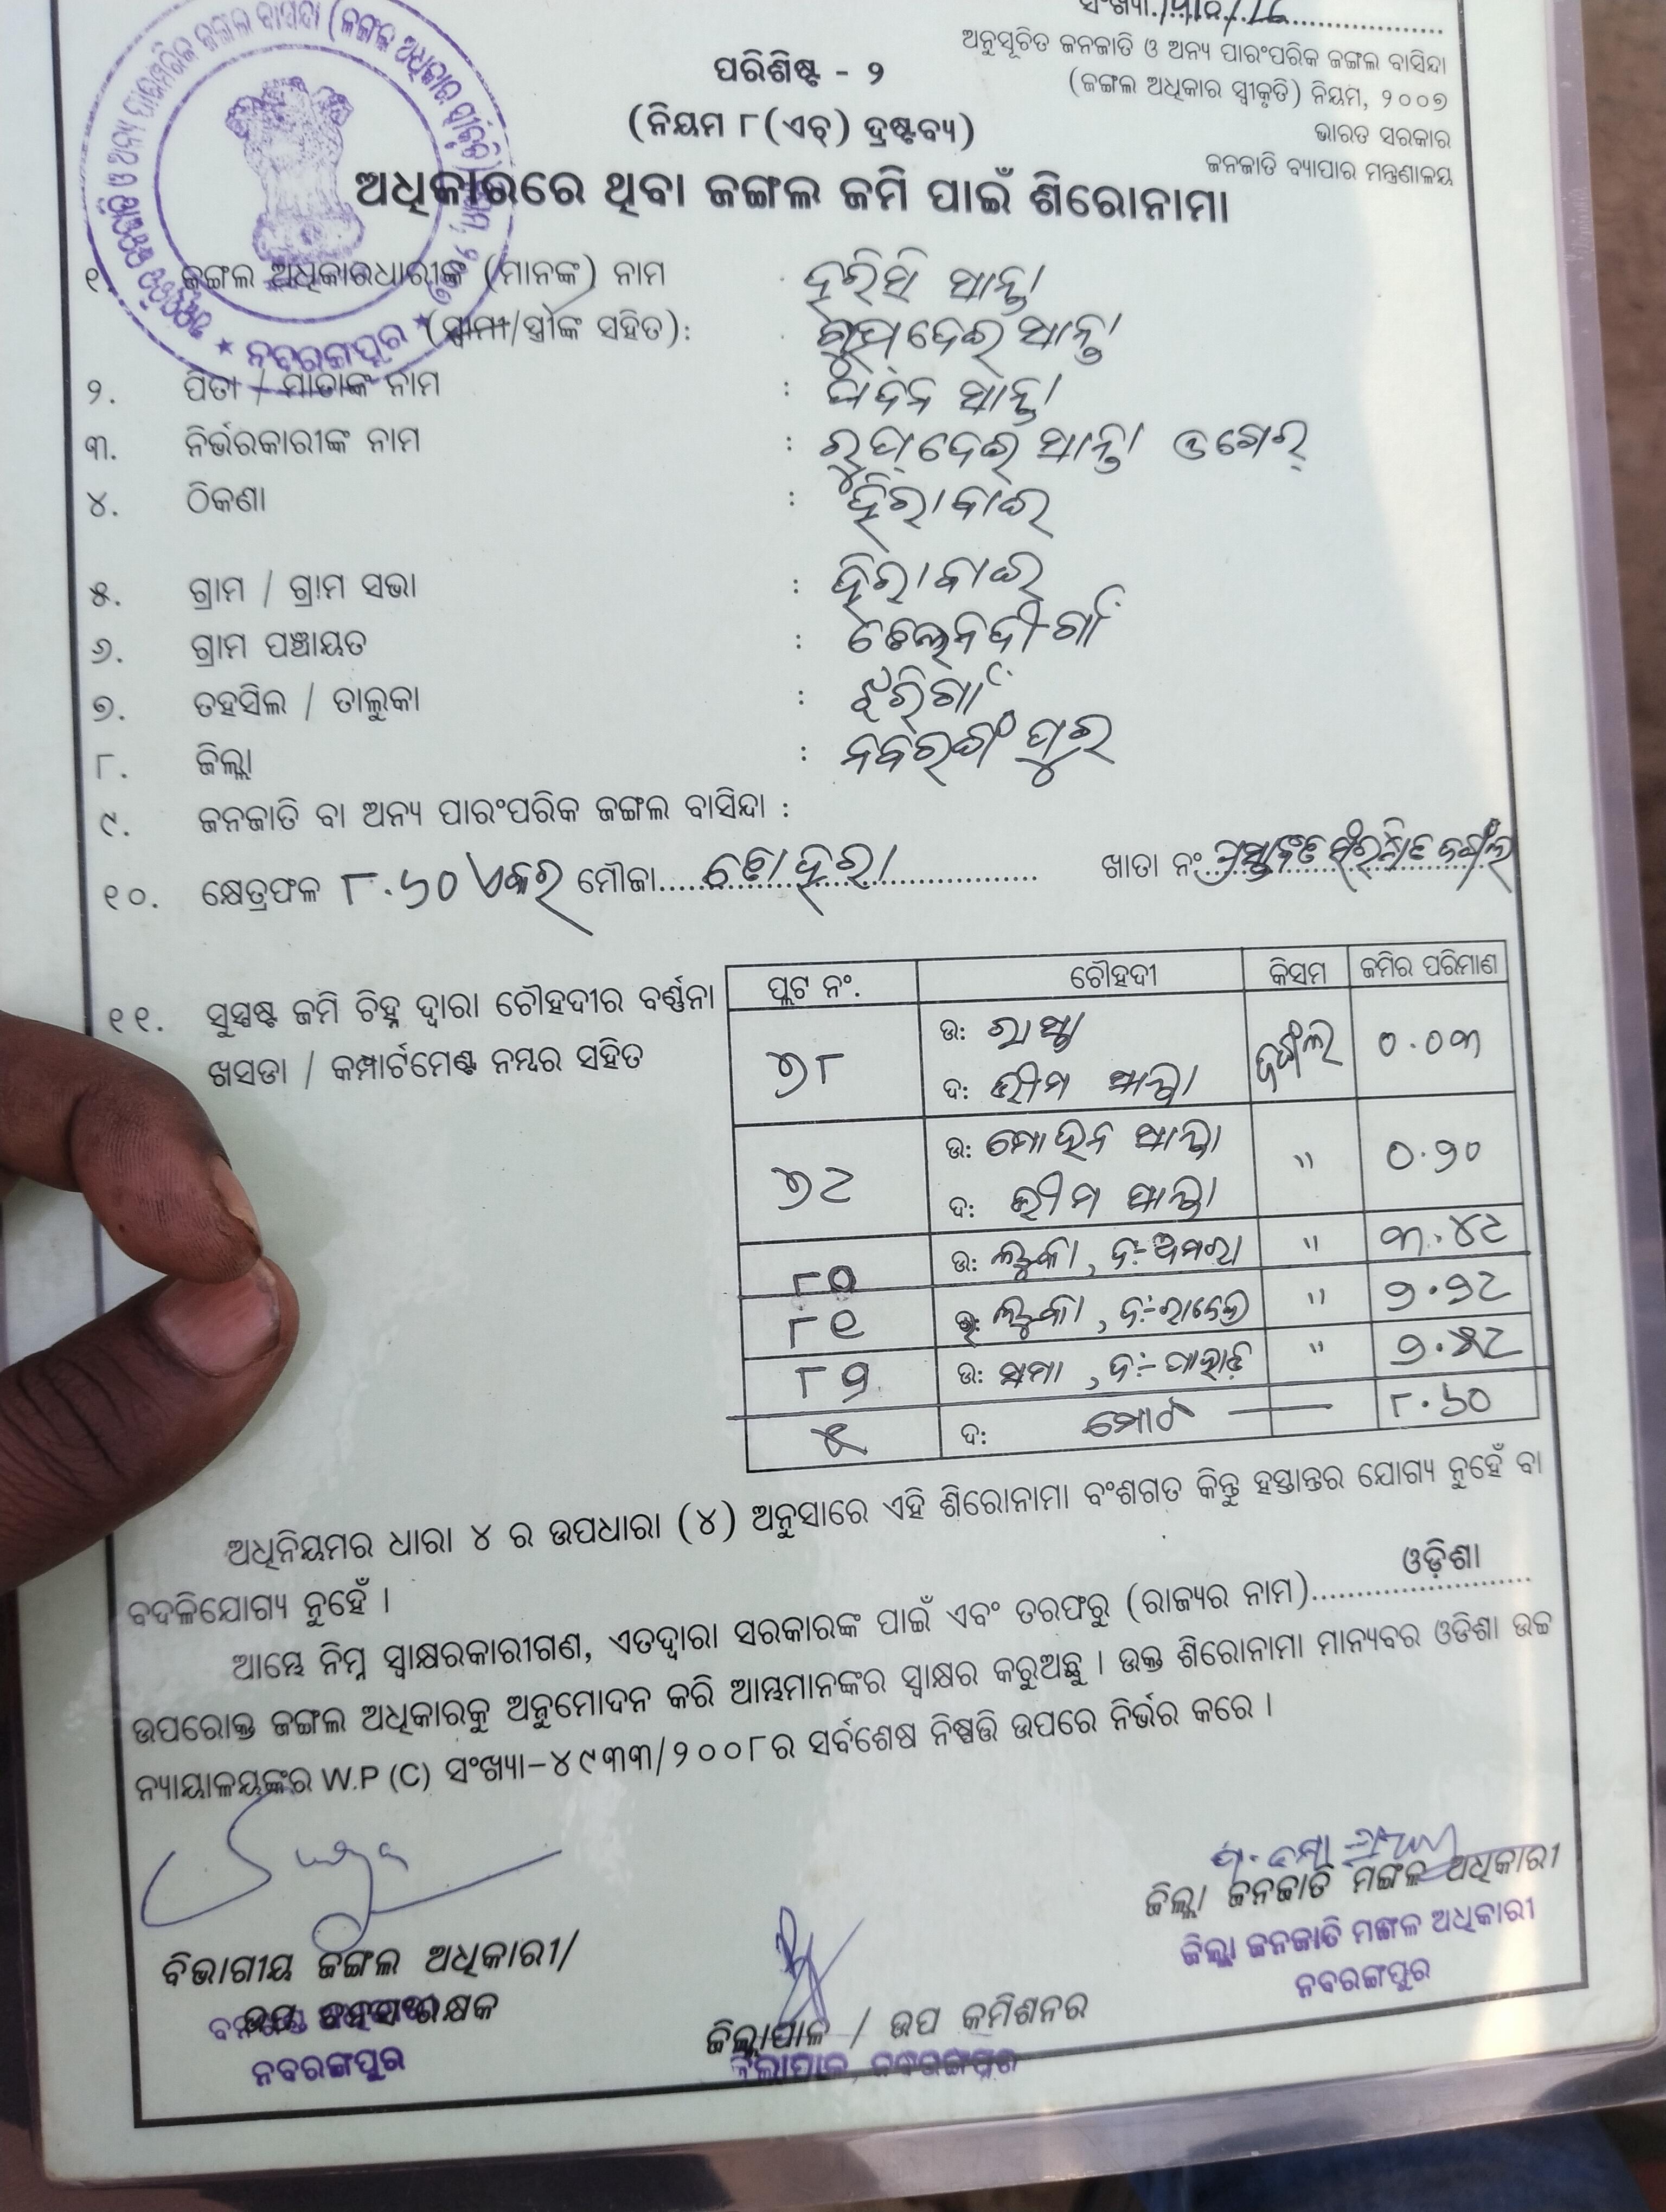 ସଂଖ୍ୟା.
ଅନୁସୂଚିତ ଜନଜାତି ଓ ଅନ୍ୟ ପାରଂପରିକ ଜଙ୍ଗଲ ବାସିନ୍ଦା
(ଜଙ୍ଗଲ ଅଧିକାର ସ୍ୱୀକୃତି) ନିୟମ, ୨୦୦୭
ଭାରତ ସରକାର
ଜନଜାତି ବ୍ୟାପାର ମନ୍ତ୍ରଣାଳୟ
ପରିଶିଷ୍ଟ - ୨
(ନିୟମ ୮(ଏଚ୍) ଦ୍ରଷ୍ଟବ୍ୟ)
ଅଧିକାରରେ ଥିବା ଜଙ୍ଗଲ ଜମି ପାଇଁ ଶିରୋନାମା
ନବରଙ୍ଗପୁର
୧. ଜଙ୍ଗଲ ଅଧିକାରଧାରୀଙ୍କ (ମାନଙ୍କ) ନାମ ହରିସି ସାନ୍ତା
(ସ୍ୱାମୀ/ସ୍ତ୍ରୀଙ୍କ ସହିତ): ସାନ୍ତା
୨. ପିତା / ମାତାଙ୍କ ନାମ : ସାନ୍ତା
୩. ନିର୍ଭରକାରୀଙ୍କ ନାମ : ସାନ୍ତା ଓ
୪. ଠିକଣା : ହିରାବାଇ
୫. ଗ୍ରାମ / ଗ୍ରାମ ସଭା : ହିରାବାଇ
୬. ଗ୍ରାମ ପଞ୍ଚାୟତ :
୭. ତହସିଲ / ତାଲୁକା : ଝରିଗାଁ
୮. ଜିଲ୍ଲା : ନବରଙ୍ଗପୁର
୯. ଜନଜାତି ବା ଅନ୍ୟ ପାରଂପରିକ ଜଙ୍ଗଲ ବାସିନ୍ଦା :
୧୦. କ୍ଷେତ୍ରଫଳ ୮.୬୦ ଏକର ମୌଜା ଖାତା ନଂ. ଜଙ୍ଗଲ
୧୧. ସୁସ୍ପଷ୍ଟ ଜମି ଚିହ୍ନ ଦ୍ୱାରା ଚୌହଦୀର ବର୍ଣ୍ଣନା
ଖସଡା / କମ୍ପାର୍ଟମେଣ୍ଟ ନମ୍ବର ସହିତ
ପ୍ଲଟ ନଂ. ଚୌହଦୀ କିସମ ଜମିର ପରିମାଣ
୭୮ ଉ: ରାସ୍ତା ଜଙ୍ଗଲ ୦.୦୩
ଦ: ଭୀମ ସାନ୍ତା
୭୯ ଉ: ମୋହନ ସାନ୍ତା " ୦.୨୦
ଦ: ଭୀମ ସାନ୍ତା
୮୦ ଉ: ଲୁକା, ଦ:- " ୩.୪୯
୮୧ ଉ: ଲୁକା, ଦ:- " ୨.୨୯
୮୨ ଉ: ସମା, ଦ:- ପାହାଡ଼ "
୫ ଦ: ମୋଟ — ୮.୬୦
ଅଧିନିୟମର ଧାରା ୪ ର ଉପଧାରା (୪) ଅନୁସାରେ ଏହି ଶିରୋନାମା ବଂଶଗତ କିନ୍ତୁ ହସ୍ତାନ୍ତର ଯୋଗ୍ୟ ନୁହେଁ ବା
ବଦଳିଯୋଗ୍ୟ ନୁହେଁ ।
ଆମ୍ଭେ ନିମ୍ନ ସ୍ୱାକ୍ଷରକାରୀଗଣ, ଏତଦ୍ୱାରା ସରକାରଙ୍କ ପାଇଁ ଏବଂ ତରଫରୁ (ରାଜ୍ୟର ନାମ) ଓଡ଼ିଶା
ଉପରୋକ୍ତ ଜଙ୍ଗଲ ଅଧିକାରକୁ ଅନୁମୋଦନ କରି ଆମ୍ଭମାନଙ୍କର ସ୍ୱାକ୍ଷର କରୁଅଛୁ । ଉକ୍ତ ଶିରୋନାମା ମାନ୍ୟବର ଓଡିଶା ଉଚ୍ଚ
ନ୍ୟାୟାଳୟଙ୍କର W.P (C) ସଂଖ୍ୟା-୪୯୩୩/୨୦୦୮ର ସର୍ବଶେଷ ନିଷ୍ପତ୍ତି ଉପରେ ନିର୍ଭର କରେ ।
ଜିଲ୍ଲା ଜନଜାତି ମଙ୍ଗଳ ଅଧିକାରୀ
ଜିଲ୍ଲା ଜନଜାତି ମଙ୍ଗଳ ଅଧିକାରୀ
ନବରଙ୍ଗପୁର
ବିଭାଗୀୟ ଜଙ୍ଗଲ ଅଧିକାରୀ/
ଉପ
ନବରଙ୍ଗପୁର
ଜିଲ୍ଲାପାଳ / ଉପ କମିଶନର
ଜିଲାପାଳ, ନବରଙ୍ଗପୁର